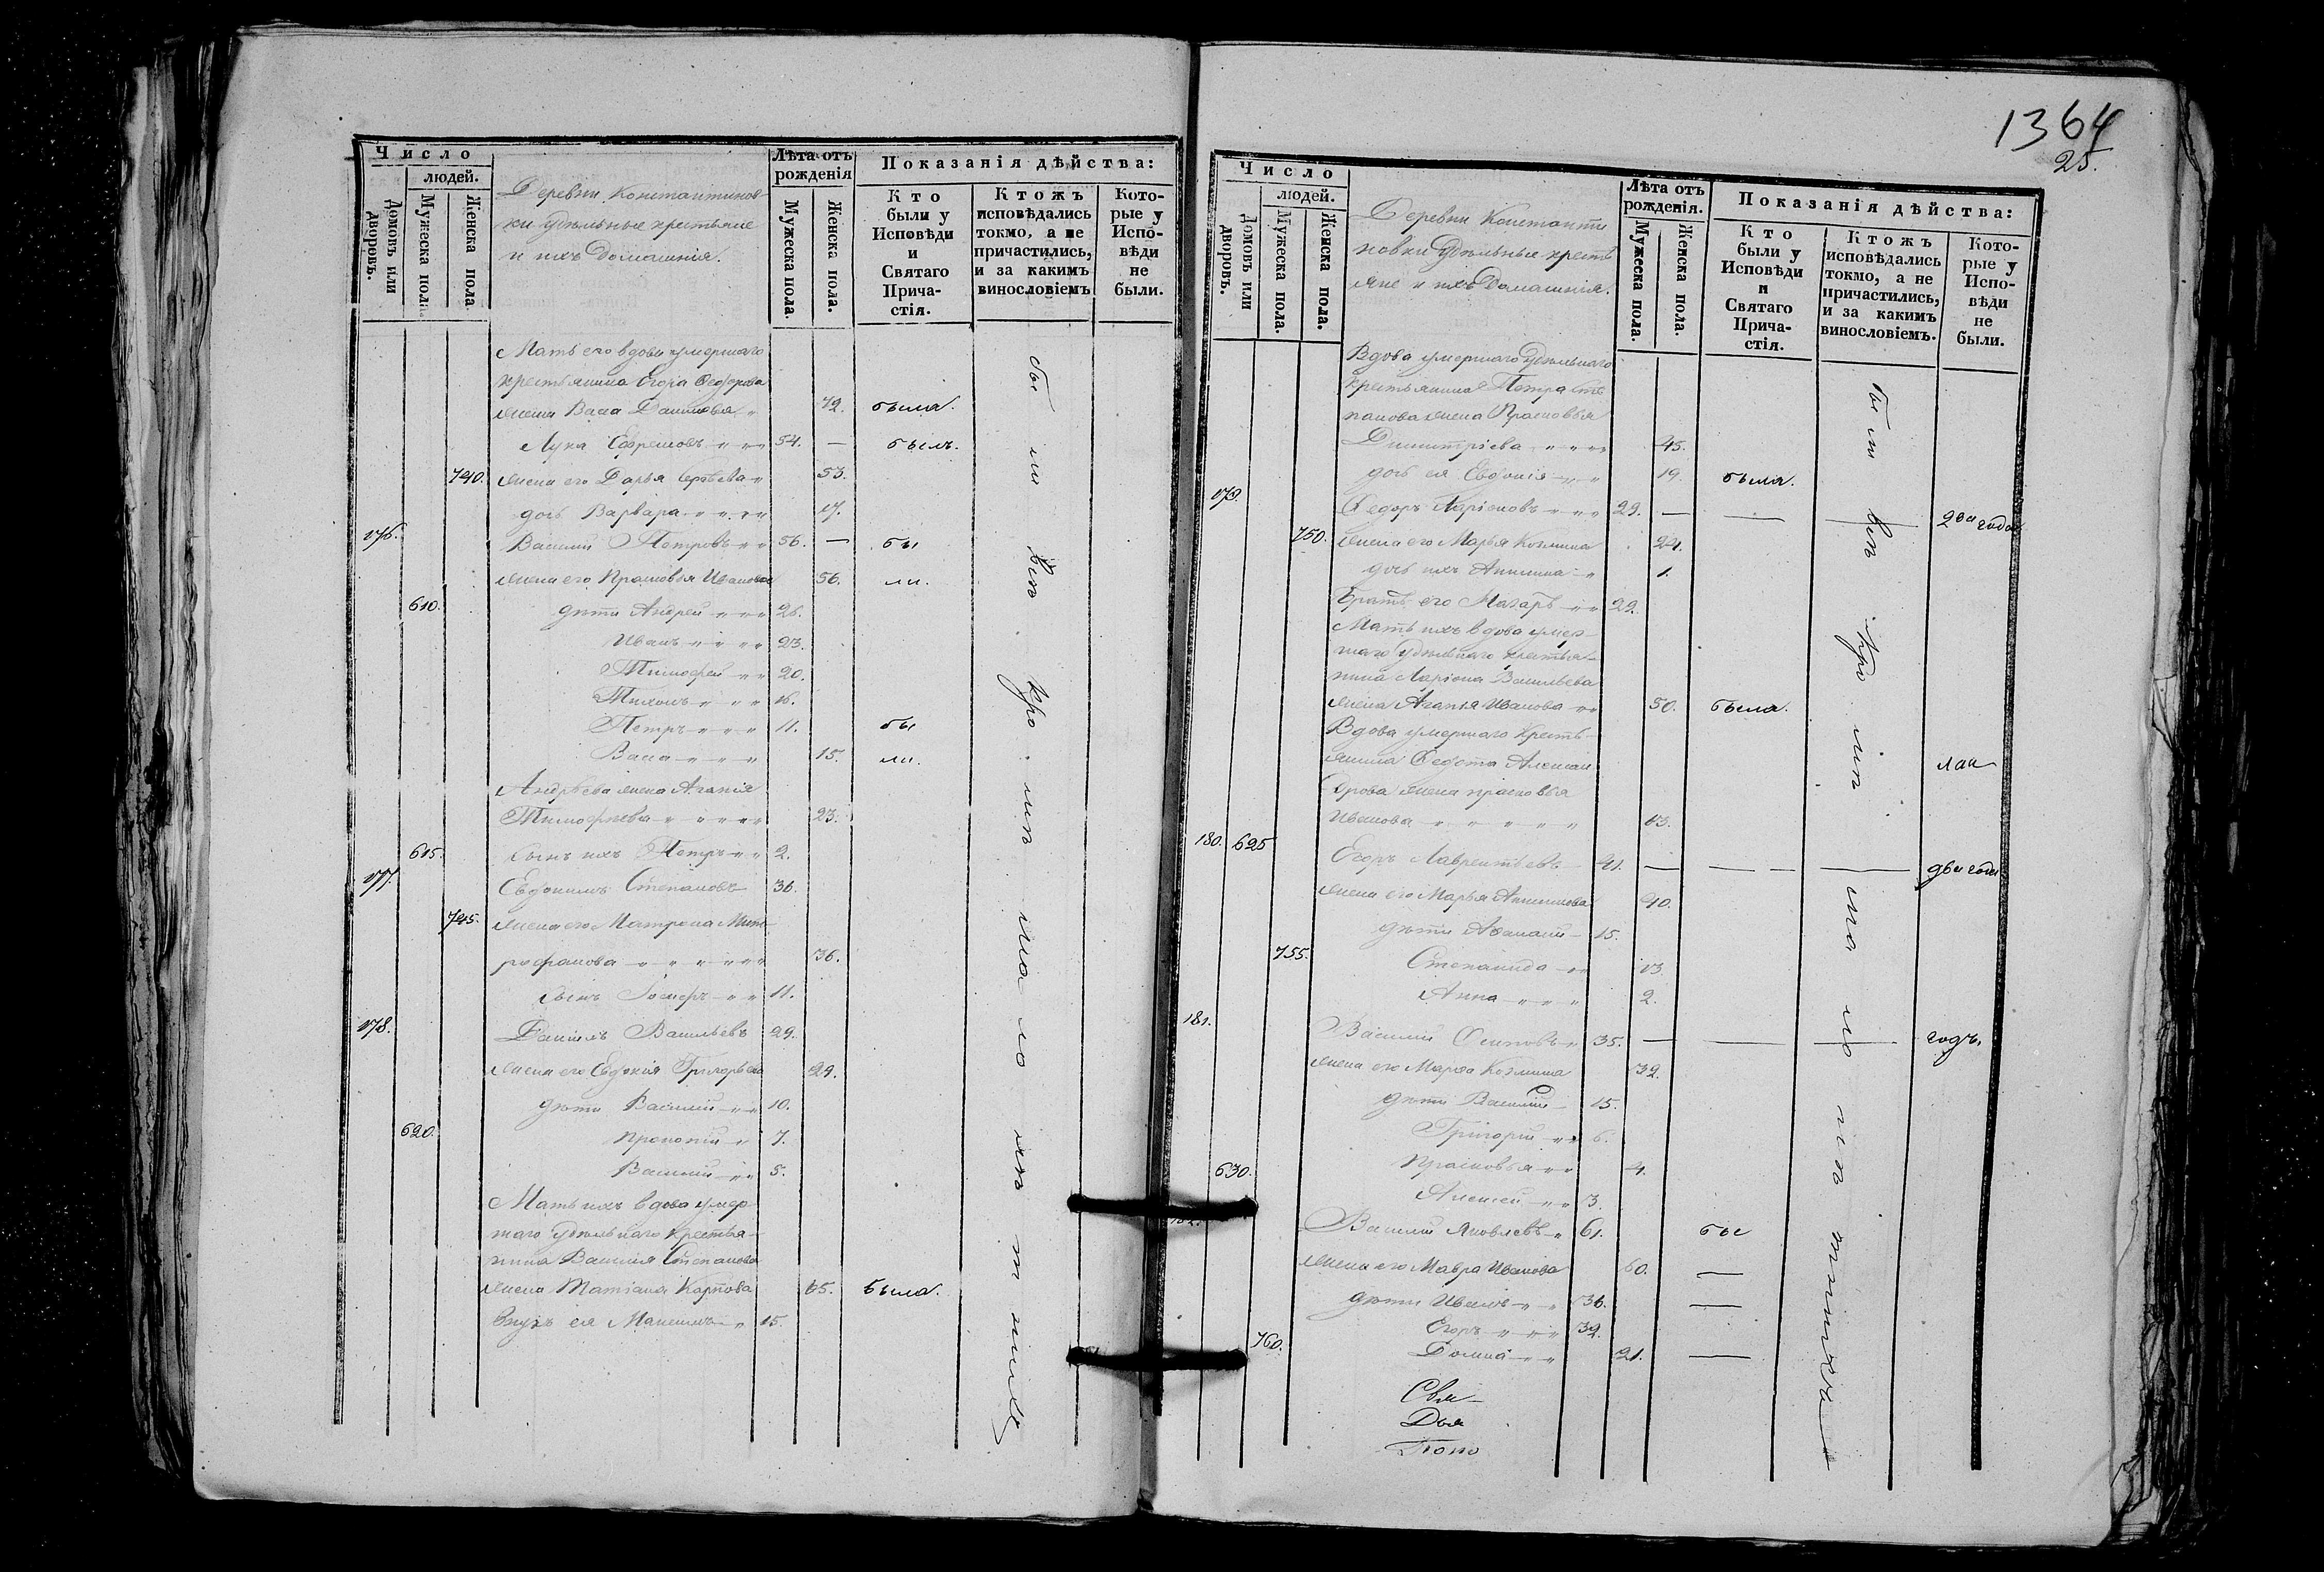 Число
людей.
Домовъ или дворовъ.
Мужеска пола.
Женска пола
Деревни Константинов-
ки удѣльные крестьяне
и ихъ домашнія.
Лѣта отъ рожденія
Мужеска пола.
Женска пола.
Показанія дѣйства:
Кто были у Исповѣди и Святаго Прича-стія.
Ктожъ исповѣдались токмо, а не причастились, и за какимъ винословіемъ
Кото-рые у Испо-вѣди не были.
Мать его вдова умершаго
крестьянина Егора Федорова
жена Васа Данилова 72. была.
Лука Ефремовъ 54. — былъ.
740. жена его Дарья 53.
дочь Варвара 17.
176. Василий Петровъ 56. — бы
жена его Прасковья Иванова 56. ли.
610. дѣти Андрей 26.
Иванъ 23.
Тимофей 20.
Тихонъ 16.
Петръ 11. бы
Васа 15. ли.
Андрѣева жена Агапія
Тимофѣева 23.
615. сынъ ихъ Петръ 2.
177. Евдокимъ Степановъ 36.
745. жена его Матрона Мит-
рофанова 36.
сынъ 11.
178. Даніилъ Васильевъ 29.
жена его Евдокія Григорьева 29.
дѣти Василій 10.
620. Прокопій 7.
Василій 5.
Мать ихъ вдова умер-
шаго удѣльнаго крестья-
нина Василія Степанова
жена Татіана Карпова 65. была.
Внукъ ея Максимъ 15.
1364
25.
Число
людей.
Домовъ или дворовъ.
Мужеска пола.
Женска пола.
Деревни Константи
новки удѣльные кресть
яне и ихъ домашнія.
Лѣта отъ рожденія.
Мужеска пола.
Женска пола.
Показанія дѣйства:
Кто были у Исповѣди и Святаго Прича-стія.
Ктожъ исповѣдались токмо, а не причастились, и за какимъ винословіемъ.
Кото-рые у Испо-вѣди не были.
Вдова умершаго удѣльнаго
крестьянина Петра Сте
панова жена Прасковья
Димитріева 45.
дочь ея Евдокія 19. была.
179. Федоръ Ларіоновъ 29. — — — 2ва года
750. жена его Марья Козмина 24.
дочь ихъ Акилина 1.
Братъ его Макаръ 22.
Мать ихъ вдова умер-
шаго удѣльнаго крестья-
нина Ларіона Васильева
жена Агапія Иванова 50. была.
Вдова умершаго кресть
янина Федота Алексан
дрова жена Прасковья
Иванова
180. 625 Егоръ Лаврентьевъ 41. — — — два года
жена его Марья 40.
дѣти Аѳанасій 15.
755. Степанида 13.
Анна 2.
181. Василий Осиповъ 35. — — — годъ.
жена его Марѳа Козмина 32.
дѣти Василій 15.
Григорій 6.
630. Прасковья 4.
Алексей 3.
Василій Яковлевъ 61. бы
жена его Мавра Иванова 60. —
дѣти Иванъ 36. —
Егоръ 32.
760. Домна 21. —
Свя-
Дья
Поно